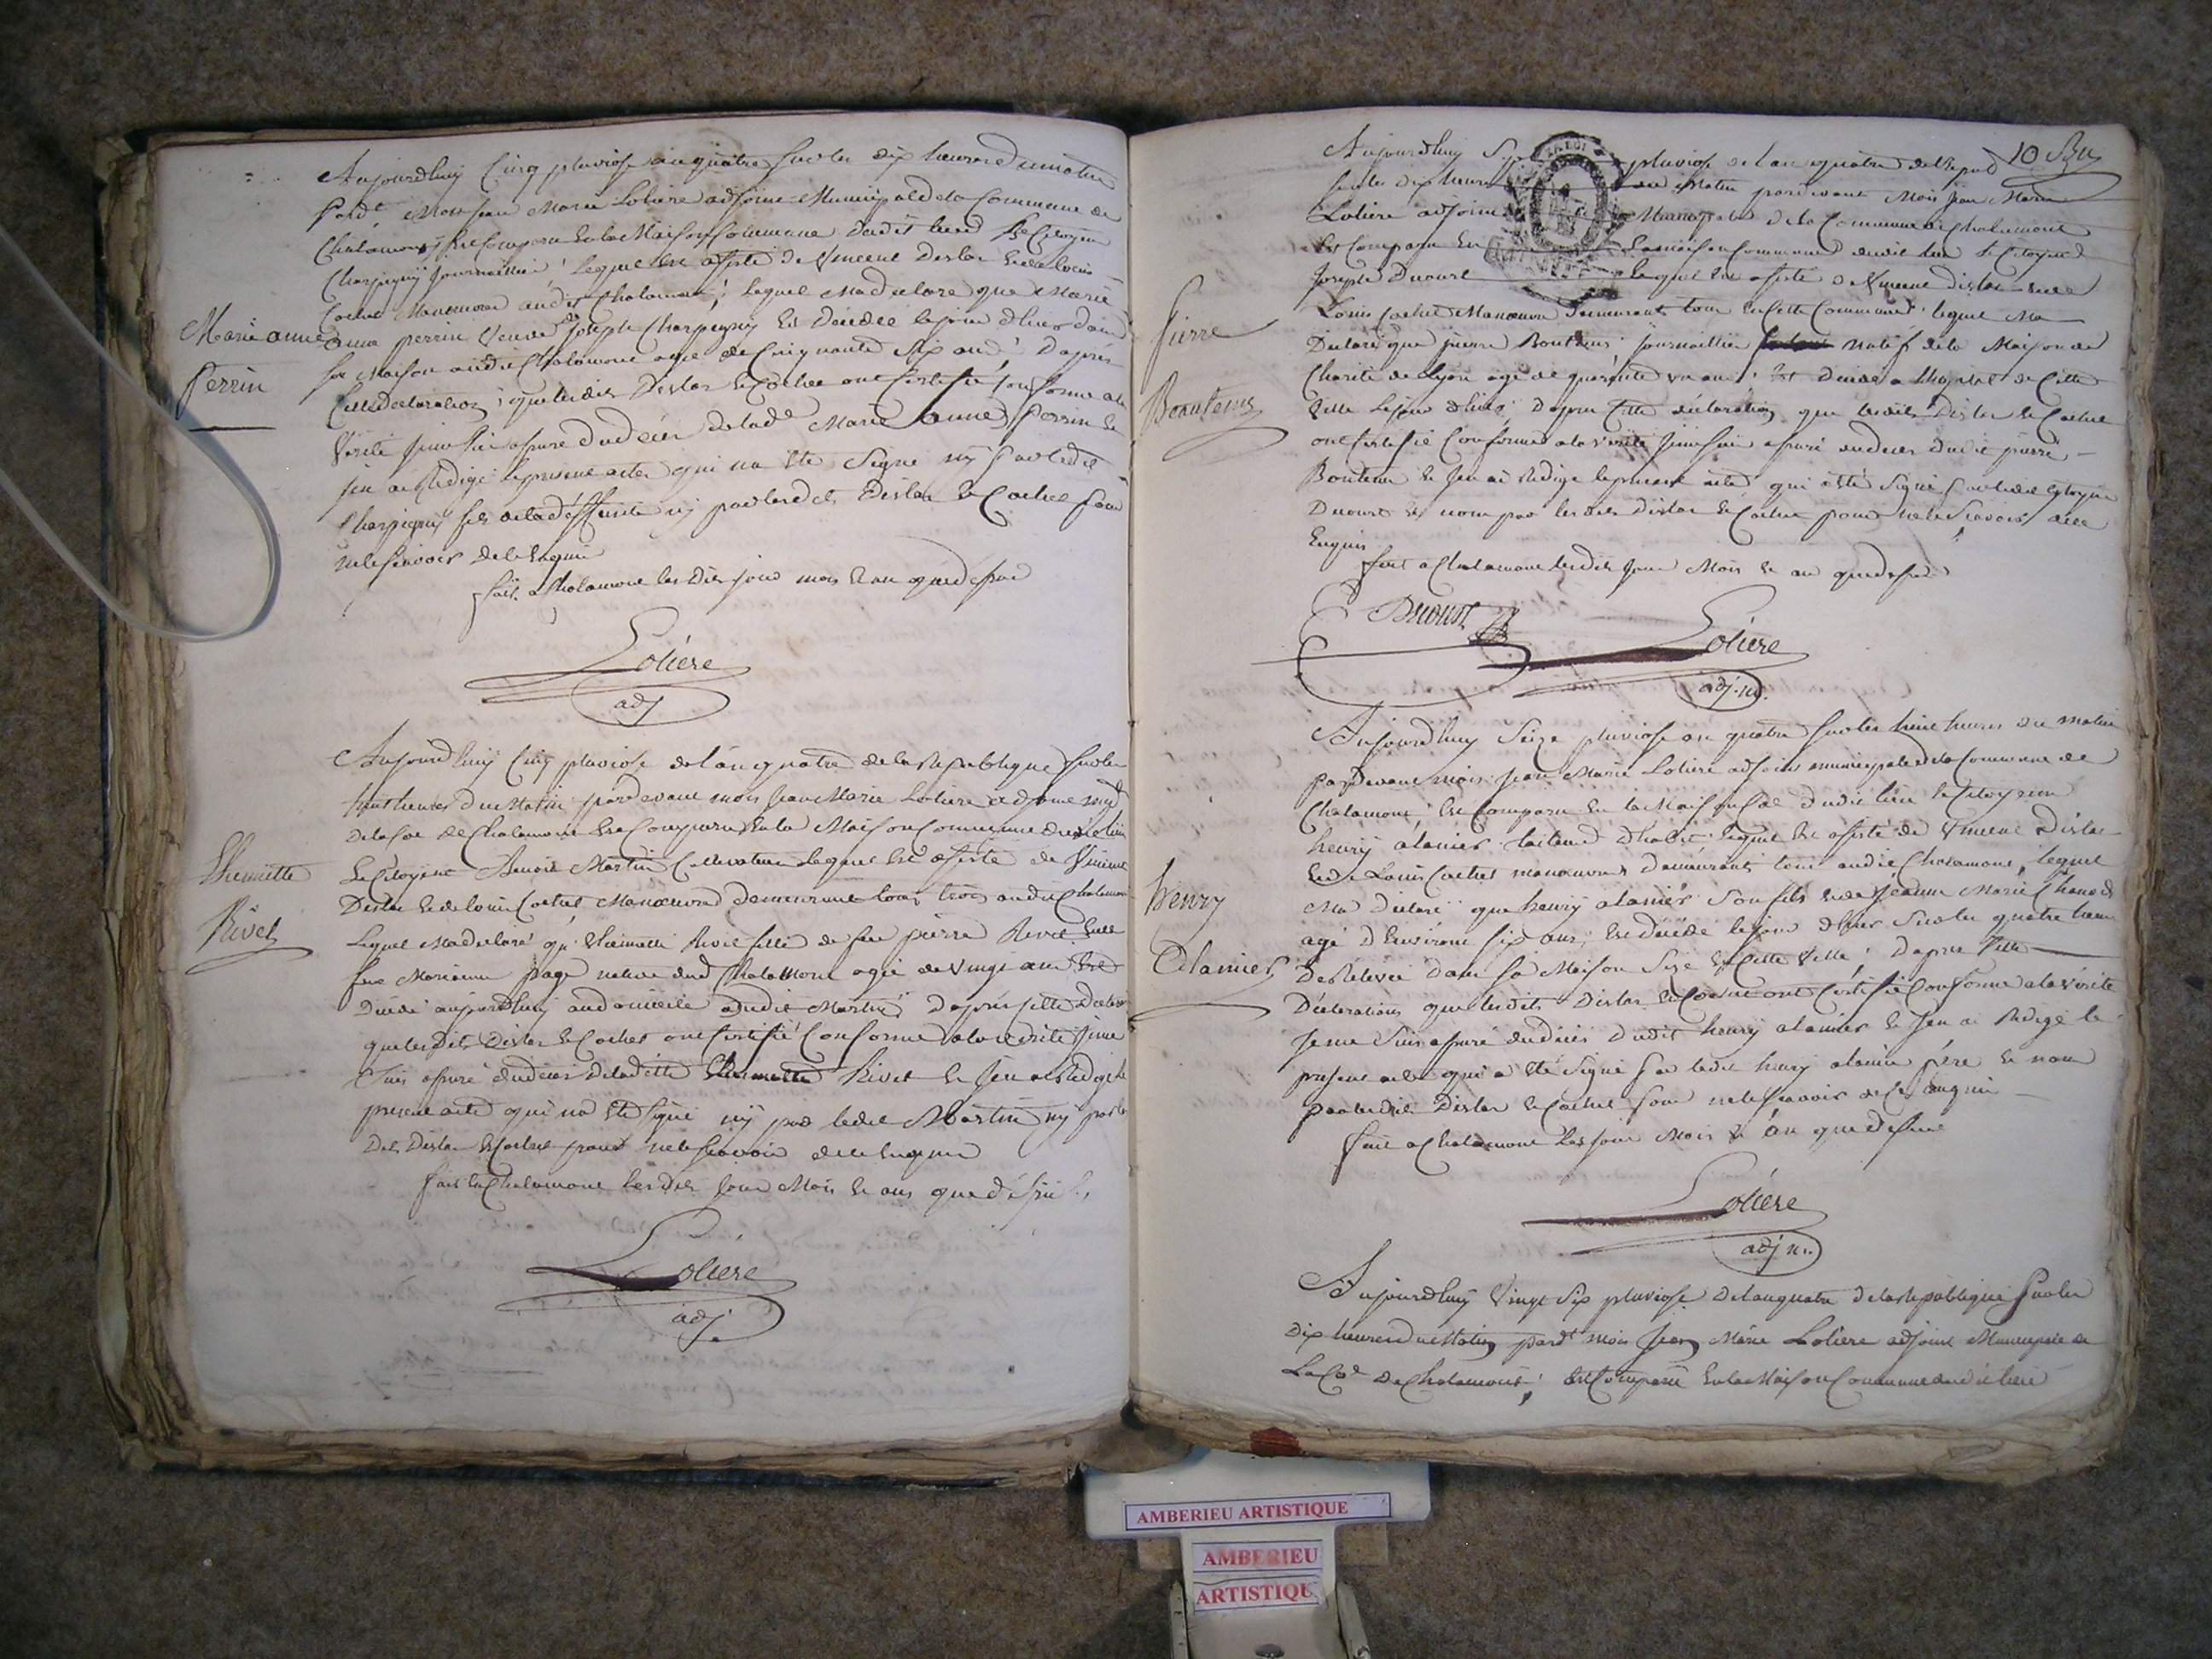 Aujourdhuy Cinq pluviose an quatre sur les dix heures du matin
pard.t Moi Jean Marie Loliere adjoint Municipal de la Commune de
Chalamont, Est Comparu En la Maison Commune dudit lieu le Citoyen
Charpigny journaillier lequel Est assisté de Vincent Dislar Et de Louis
Cochet Manœuvre audit Chalamont; lequel Ma déclaré que Marie
anne perrin veuve de Joseph Charpigny Est Décédée le jour d'hier dans
sa Maison audit Chalamont agée de Cinquante Six ans; D'après
Cette Declaration, que lesdits Dislar Et Cochet ont Certifié Conforme a la
Vérité je me suis assuré du décès de lad.e Marie anne perrin Et
j'en ai Rédigé le présent acte qui n'a Eté Signé ny par ledit
Charpigny fils de la déffunte ny par lesdits Dislar Et Cochet pour
ne le scavoir de ce Enquis
fait a Chalamont les Dits jour mois Et an que dessus
Loliere
adj
Marie anne
Perrin
Aujourdhuy Cinq pluviose de l'an quatre de la Republique sur les
huit heures du Matin pardevant moi Jean Marie Loliere adjoint
de la Cne de Chalamont Est Comparu En la Maison Commune dudit lieu
Le Citoyen Benoit Martin Cultivateur lequel Est assisté de Vincent
Dislar Et de Louis Cochet Manœuvre demeurant tous trois audit Chalamont
Lequel Ma déclaré qu' Rivet fille de feu pierre Rivet Et de
feue Marianne page native dud Chalamont agée de vingt ans Est
Décédé aujourdhuy au domicile dudit Martin D'après cette
que lesdits Dislar Et Cochet ont Certifié Conforme a la vérité je me
Suis assuré du décès de ladite Rivet Et j'en ai Redigé le
present acte qui n'a Eté signé ny par ledit Martin ny par les
Dits Dislar Et Cochet pour ne le scavoir de ce Enquis
fait a Chalamont les Dits jour Mois Et an que dessus
Loliere
adj.
Rivet
10
Aujourdhuy pluviose de l'an quatre de la Repub
sur les dix heures du Matin pardevant Moi Jean Marie
Loliere adjoint Municipal de la Commune de Chalamont
Est Comparu En la maison Commune dudit lieu le Citoyen
Joseph Ducurt lequel Est assisté de Vincent Dislar Et de
Louis Cochet Manœuvre demeurant tous En Cette Commune; lequel Ma
Déclaré que pierre Bouteux journaillier natif de la Maison de
Charité de Lyon agé de quarante un ans; Est Décédé a l'hopital de Cette
Ville le jour d'hier; D'après Cette déclaration que lesdits Dislar Et Cochet
ont Certifié Conforme a la Verité je me suis assuré du décès dudit pierre
Bouteux Et J'en ai Rédigé le présent acte qui a été Signé par ledit Citoyen
Ducurt Et non par lesdits Dislar Et Cochet pour ne le Scavoir de ce
Enquis
fait a Chalamont lesdits Jour Mois Et an que dessus
Ducurt Loliere
adj. m.
Pierre
Bouteux
Aujourdhuy Seize pluviose an quatre sur les huit heures du matin
pardevant moi Jean Marie Loliere adjoint municipal de la Commune de
Chalamont, Est Comparu En la Maison Cne dudit lieu le Citoyen
henry alanier tailleur d'habit lequel Est assisté de Vincent Dislar
Et de Louis Cochet manœuvres demeurants tous audit Chalamont, lequel
Ma Déclaré que henry alanier Son fils Et de Jeanne Marie
agé d'Environt six ans; Est décédé le jour d'hier Sur les quatre heures
De Relevée dans sa Maison Size En Cette Ville; D'après Cette
Déclaration que lesdits Dislar Et Cochet ont Certifié Conforme a la vérité
Je me Suis assuré du décès dudit henry alanier Et J'en ai Rédigé le
présent acte qui a Eté Signé par ledit henry alanier père Et non
par lesdits Dislar Et Cochet pour ne le scavoir de ce Enquis
fait a Chalamont Les jour Mois Et an que dessus
Loliere
adj m.
henry
alanier
Aujourdhuy Vingt Six pluviose de l'an quatre de la Republique sur les
Dix heures du Matin pard.t moi Jean Marie Loliere adjoint Municipal de
La Cne de Chalamont; Est Comparu En la Maison Commune dudit lieu
AMBERIEU ARTISTIQUE
AMBERIEU
ARTISTIQU